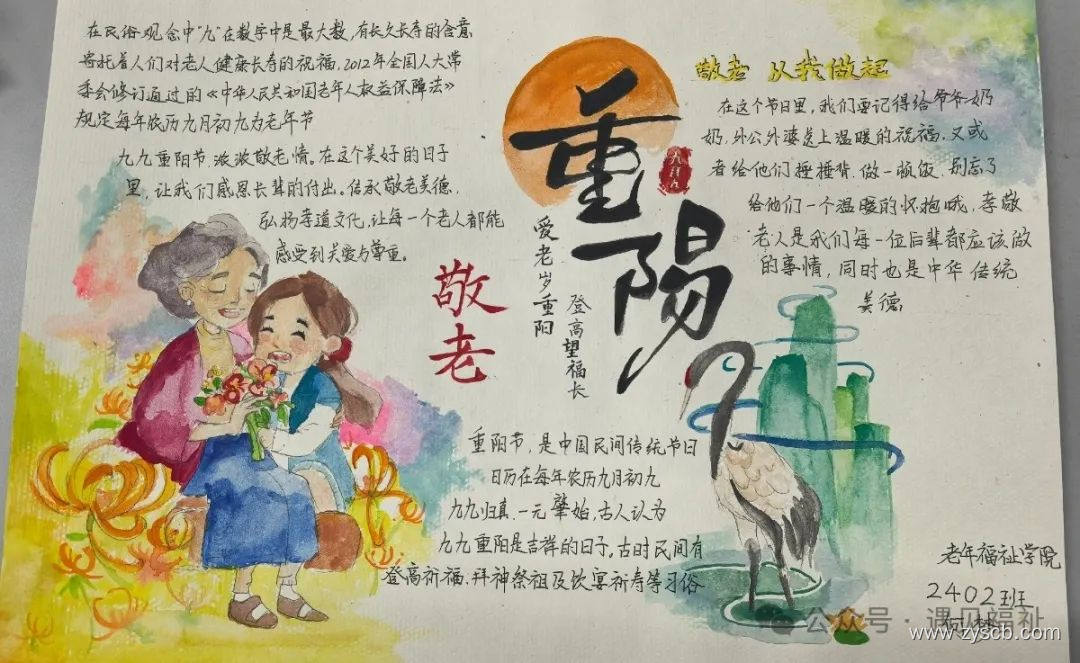 在民俗观念中"九"在数字中是最大数,有长久长寿的含意
寄托着人们对老人健康长寿的祝福,2012年全国人大常
委会修订通过的《中华人民共和国老年人权益保障法》
规定每年农历九月初九为老年节
九九重阳节,浓浓敬老情。在这个美好的日子
里,让我们感恩长辈的付出。传承敬老美德,
弘扬孝道文化,让每一个老人都能
感受到关爱与尊重。
敬老
重陽
九月九
爱老岁重阳
登高望福长
敬老 从我做起
在这个节日里,我们要记得给爷爷奶
奶,外公外婆送上温暖的祝福,又或
者给他们捶捶背,做一顿饭,别忘了
给他们一个温暖的怀抱哦,孝敬
老人是我们每一位后辈都应该做
的事情,同时也是中华传统
美德
重阳节,是中国民间传统节日
日历在每年农历九月初九
九九归真,一元肇始,古人认为
九九重阳是吉祥的日子,古时民间有
登高祈福、拜神祭祖及饮宴祈寿等习俗
老年福祉学院
2402班
公众号·遇见福祉
www.zyscb.com